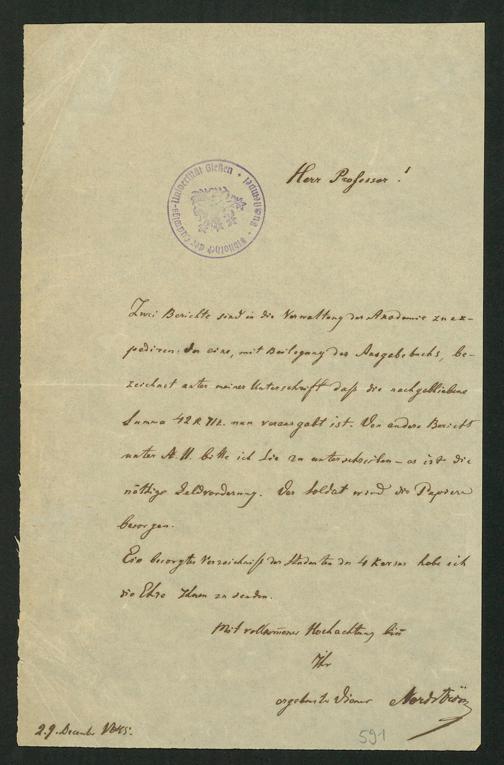 Herr Professor!
Bibliothek der Ludwigs-Universität Gießen
Zwei Berichte sind in die Verwaltung der Akademie zu ex-
pediren: der eine, mit Beilegung des Ausgabebuchs, be-
zeichnet unter meiner Unterschrift daß die nachgebliebene
Summa 42 R 71 2. nun verausgabt ist. Den andere Bericht
unter A. II. bitte ich Sie zu unterschreiben – es ist die
nöthige Geldvorderung. Der Soldat wird die Papiere
besorgen.
Ein besorgtes Verzeichniß der Studenten des 4 Kursus habe ich
die Ehre Ihnen zu senden.
Mit vollkommener Hochachtung bin
Ihr
ergebenster Diener Nordström
29. December 1845.
591